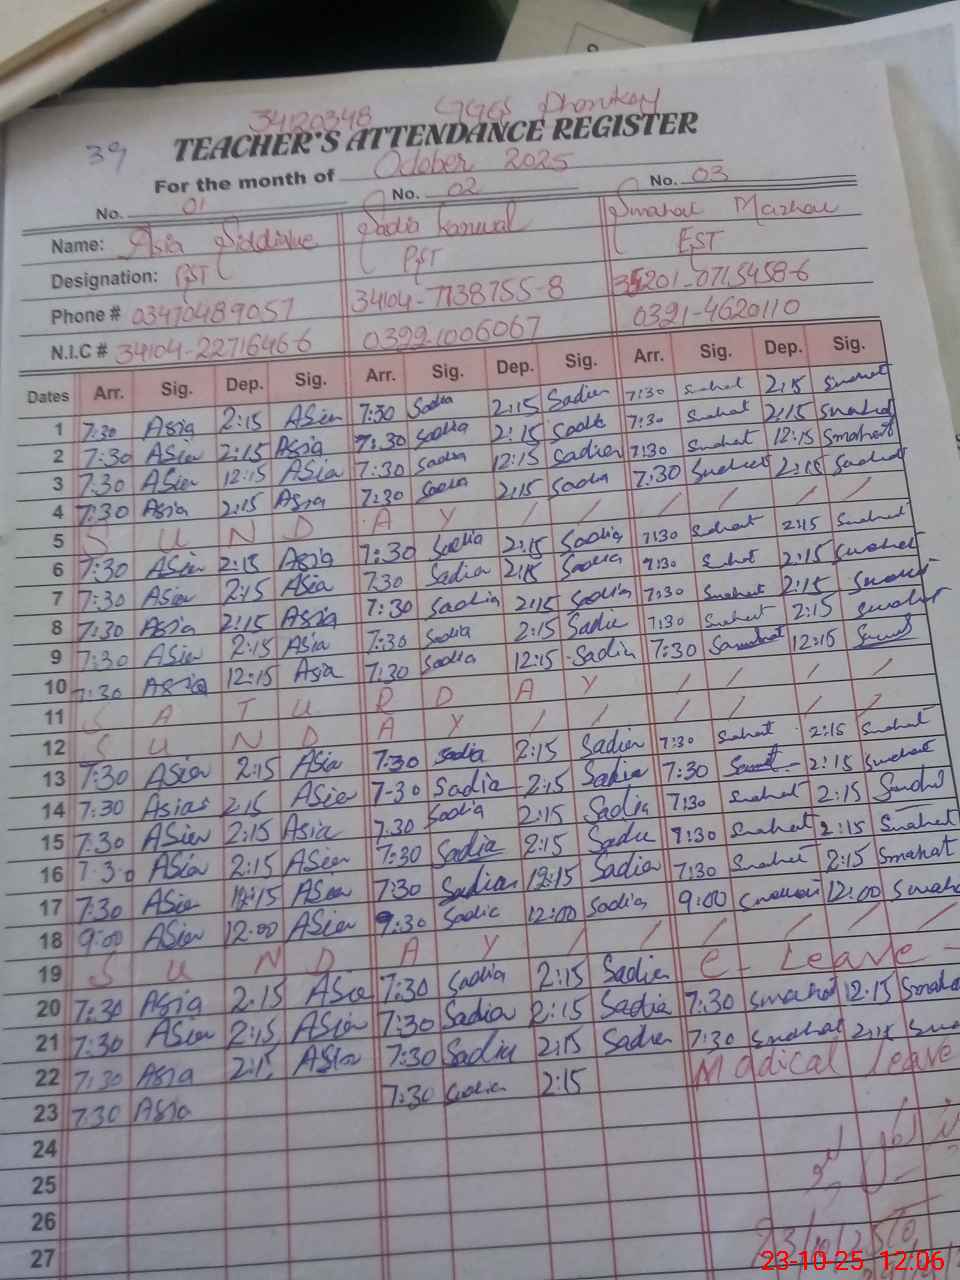 34120348 GGES Dhonikay
39 TEACHER'S ATTENDANCE REGISTER
For the month of October 2025
No. 01 No. 02 No. 03
Name: Asia Siddique Sadia Kanwal Smahat Mazhar
Designation: PST PST EST
Phone # 03470489057 34104-7138755-8 35201-0715458-6
N.I.C # 34104-2271646-6 0322-1006067 0321-4620110
Dates Arr. Sig. Dep. Sig. Arr. Sig. Dep. Sig. Arr. Sig. Dep. Sig.
1 7:30 Asia 2:15 Asia 7:30 Sadia 2:15 Sadia 7:30 Smahat 2:15 Smahat
2 7:30 Asia 2:15 Asia 7:30 Sadia 2:15 Sadia 7:30 Smahat 2:15 Smahat
3 7:30 Asia 12:15 Asia 7:30 Sadia 12:15 Sadia 7:30 Smahat 12:15 Smahat
4 7:30 Asia 2:15 Asia 7:30 Sadia 2:15 Sadia 7:30 Smahat 2:15 Smahat
5 S U N D A Y / / / / / /
6 7:30 Asia 2:15 Asia 7:30 Sadia 2:15 Sadia 7:30 Smahat 2:15 Smahat
7 7:30 Asia 2:15 Asia 7:30 Sadia 2:15 Sadia 7:30 Smahat 2:15 Smahat
8 7:30 Asia 2:15 Asia 7:30 Sadia 2:15 Sadia 7:30 Smahat 2:15 Smahat
9 7:30 Asia 2:15 Asia 7:30 Sadia 2:15 Sadia 7:30 Smahat 2:15 Smahat
10 7:30 Asia 12:15 Asia 7:30 Sadia 12:15 Sadia 7:30 Smahat 12:15 Smahat
11 S A T U R D A Y / / / /
12 S U N D A Y / / / / / /
13 7:30 Asia 2:15 Asia 7:30 Sadia 2:15 Sadia 7:30 Smahat 2:15 Smahat
14 7:30 Asia 2:15 Asia 7:30 Sadia 2:15 Sadia 7:30 Smahat 2:15 Smahat
15 7:30 Asia 2:15 Asia 7:30 Sadia 2:15 Sadia 7:30 Smahat 2:15 Smahat
16 7:30 Asia 2:15 Asia 7:30 Sadia 2:15 Sadia 7:30 Smahat 2:15 Smahat
17 7:30 Asia 12:15 Asia 7:30 Sadia 12:15 Sadia 7:30 Smahat 2:15 Smahat
18 9:00 Asia 12:00 Asia 9:30 Sadia 12:00 Sadia 9:00 Smahat 12:00 Smahat
19 S U N D A Y / / / / / /
20 7:30 Asia 2:15 Asia 7:30 Sadia 2:15 Sadia C - Leave -
21 7:30 Asia 2:15 Asia 7:30 Sadia 2:15 Sadia 7:30 Smahat 12:15 Smahat
22 7:30 Asia 2:15 Asia 7:30 Sadia 2:15 Sadia 7:30 Smahat 2:15 Sma
23 7:30 Asia 7:30 Sadia 2:15 Madical leave
24
25
26
27
23/10/25
23-10-25 12:06